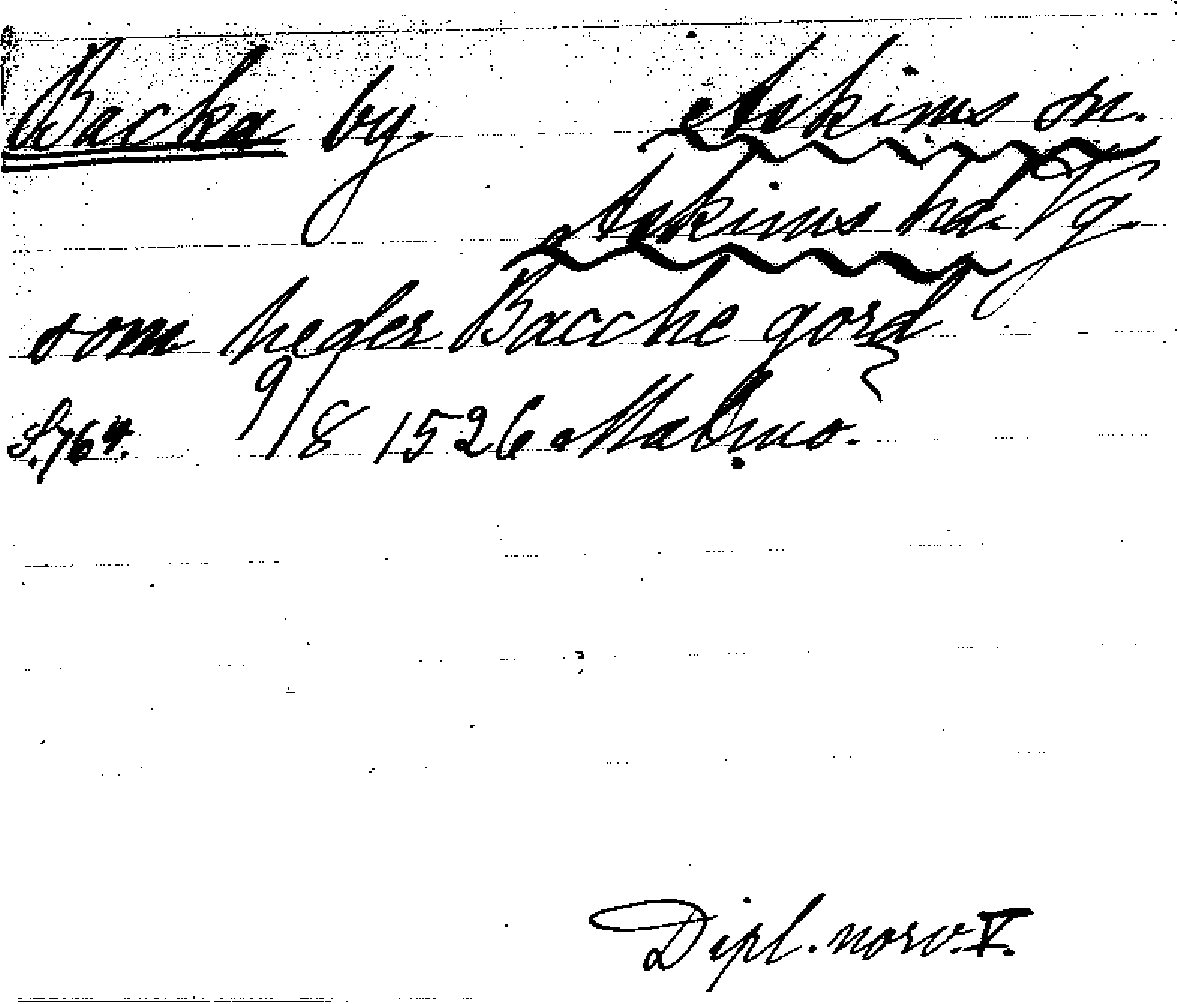 Backa by. Askims sn.
Askims hd. Vg.
som heder Bacche gord
S. 764. 9/8 1526 Malmo.
Dipl. norv. V.